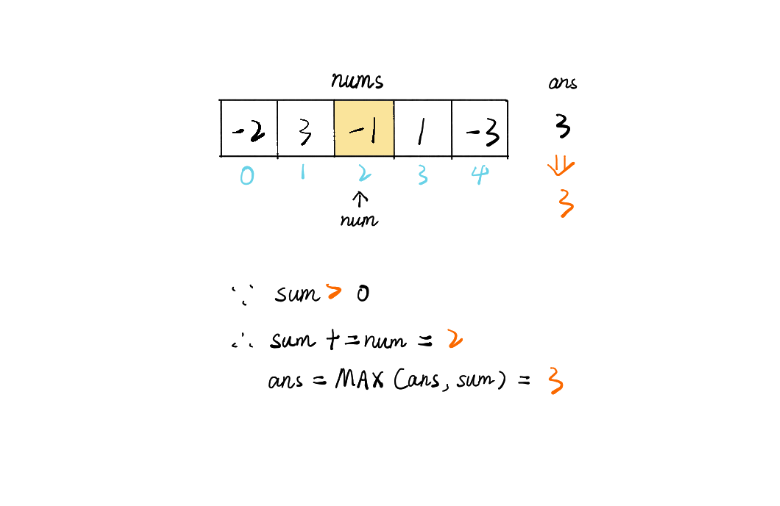 nums ans
-2 3 -1 1 -3 3
0 1 2 3 4 ⇓
num 3
∵ sum > 0
∴ sum += num = 2
ans = MAX (ans, sum) = 3